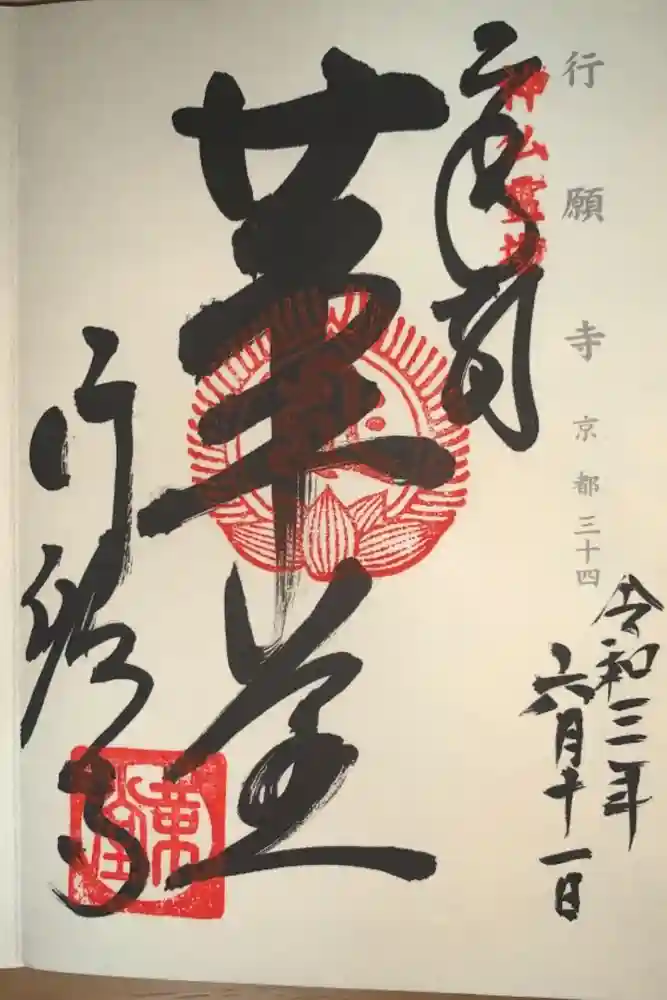 行願寺 京都三十四
令和三年
六月十一日
奉拝
神仏霊場
革堂
行願寺
革堂